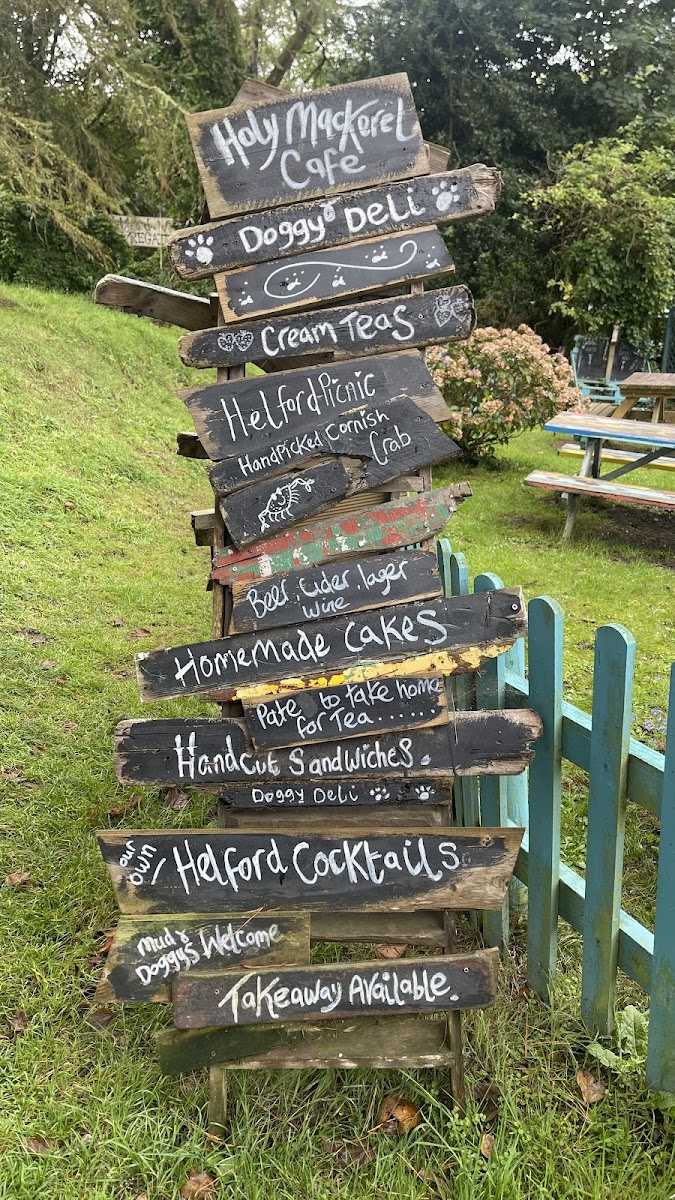 Holy Mackerel
Cafe
Doggy Deli
Cream Teas
Helford Picnic
HandPicked Cornish
Crab
Beer, Cider, lager
wine
Homemade Cakes
Pate to take home
for Tea......
Handcut Sandwiches.
Doggy Deli
our
own
Helford Cocktails
Mud &
Doggys Welcome
Takeaway Available.